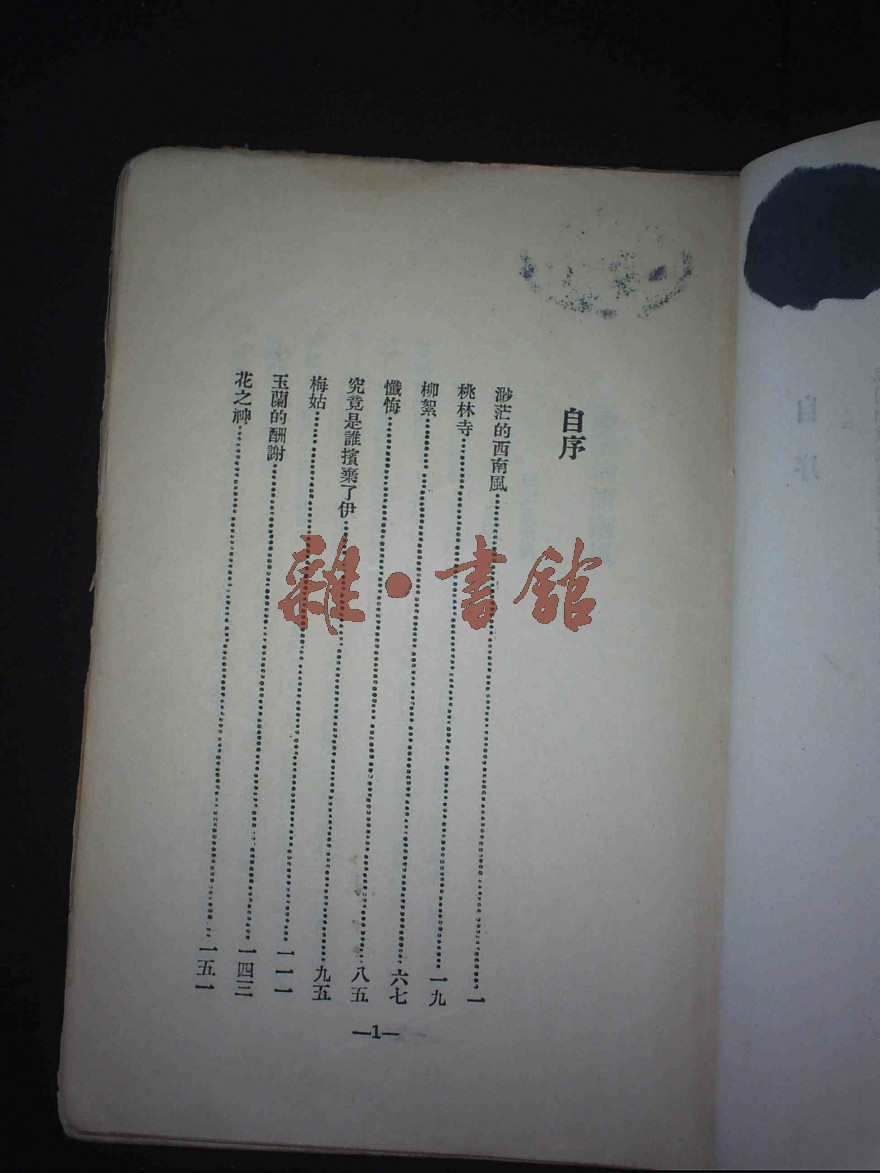 自序
渺茫的西南風……………一
桃林寺……………一九
柳絮……………六七
懺悔……………八五
究竟是誰擯棄了伊……………九五
梅姑……………一一一
玉蘭的酬謝……………一四三
花之神……………一五一
—1—
雜·書館
自序